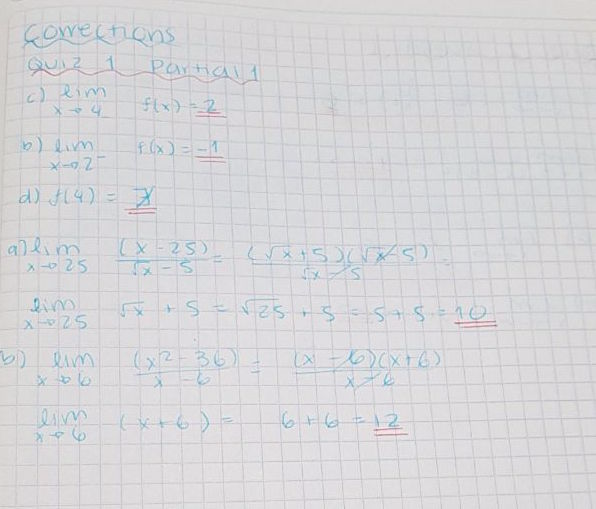 Corrections
Quiz 1 Partial 1
c) lim x→4 f(x) = 2
b) lim x→2⁻ f(x) = -1
d) f(4) =
a) lim x→25 (x-25)/(√x-5) = (√x+5)(√x-5)/(√x-5) =
lim x→25 √x + 5 = √25 + 5 = 5+5 = 10
b) lim x→6 (x²-36)/(x-6) = (x-6)(x+6)/(x-6)
lim x→6 (x+6) = 6+6 = 12